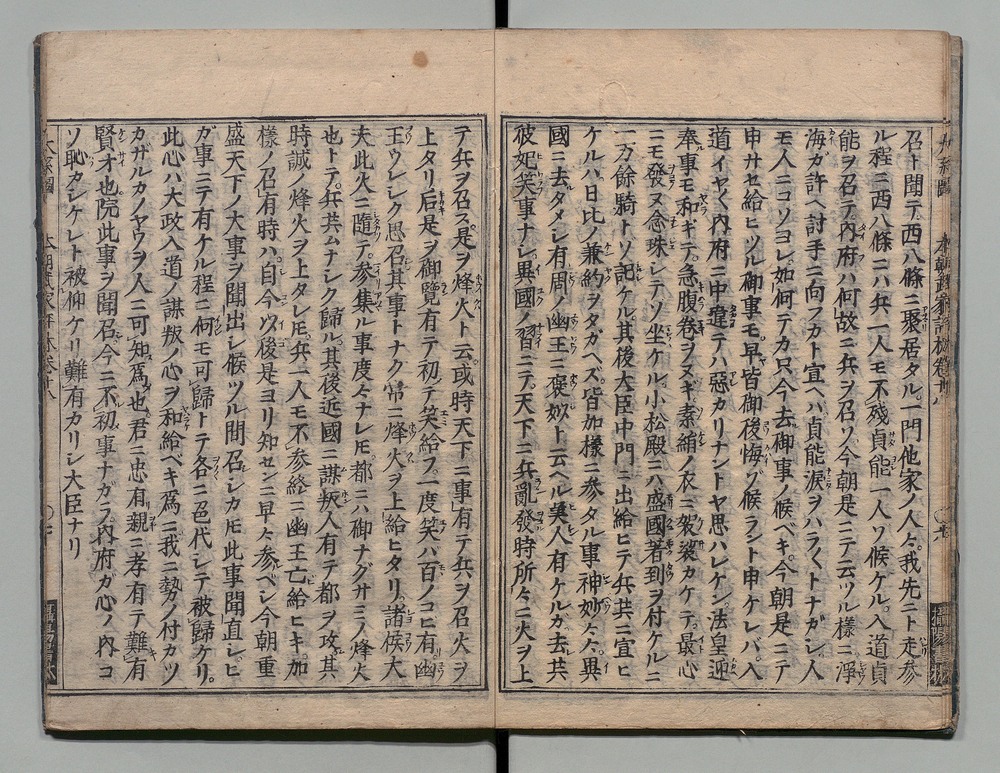 召ト聞テ西八條ニ聚居タル一門他家ノ人々我先ニト走参
ル程ニ西八條ニハ兵一人モ不殘貞能一人ソ候ケル入道貞
能ヲ召テ内府ハ何故ニ兵ヲ召ソ今朝是ニテ云ツル樣ニ淨
海ガ許ヘ討手ニ向フカト宣ヘハ貞能淚ヲハラ〱トナガシ人
モ人ニコソヨレ如何テカ只今去御事ノ候ベキ今朝是ニテ
申サセ給ヒツル御事モ早皆御後悔ゾ候ラント申ケレバ入
道イヤ〱内府ニ中違テハ惡カリナントヤ思ハレケン法皇迎
奉事モ和ギテ急腹卷ヲヌギ素絹ノ衣ニ袈裟カケテ最心
ニモ發ヌ念珠シテソ坐ケル小松殿ニハ盛國著到ヲ付ケルニ
一万餘騎トソ記ケル其後大臣中門ニ出給ヒテ兵共ニ宣ヒ
ケルハ日比ノ兼約ヲタガヘズ皆加樣ニ参タル事神妙々々異
國ニ去タメシ有周ノ幽王ニ褒姒ト云ヘル美人有ケルカ去共
彼妃笑事ナシ異國ノ習ニテ天下ニ兵亂發時所々ニ火ヲ上
テ兵ヲ召ス是ヲ烽火ト云或時天下ニ事有テ兵ヲ召火ヲ
上タリ后是ヲ御覽有テ初テ笑給フ一度笑ハ百ノコヒ有幽
王ウレシク思召其事トナク常ニ烽火ヲ上給ヒタリ諸候大
夫此火ニ隨テ参集ル事度々ナレ𪜈都ニハ御ナグサミノ烽火
也トテ兵共ムナシク歸ル其後近國ニ謀叛人有テ都ヲ攻其
時誠ノ烽火ヲ上タレ𪜈兵一人モ不参終ニ幽王亡給ヒキ加
樣ノ召有時ハ自今以後是ヨリ知センニ早々参ベシ今朝重
盛天下ノ大事ヲ聞出シ候ツル間召シカ𪜈此事聞直シヒ
ガ事ニテ有ケル程ニ何モ可歸トテ各ニ色代シテ被歸ケリ
此心ハ大政入道ノ謀叛ノ心ヲ和給ベキ爲ニ我ニ勢ノ付カツ
カザルカノヤウヲ人ニ可知爲也君ニ忠有親ニ孝有テ難有
賢才也院此事ヲ聞召今ニ不初事ナガラ内府ガ心ノ内コ
ソ恥カシケレト被仰ケリ難有カリシ大臣ナリ